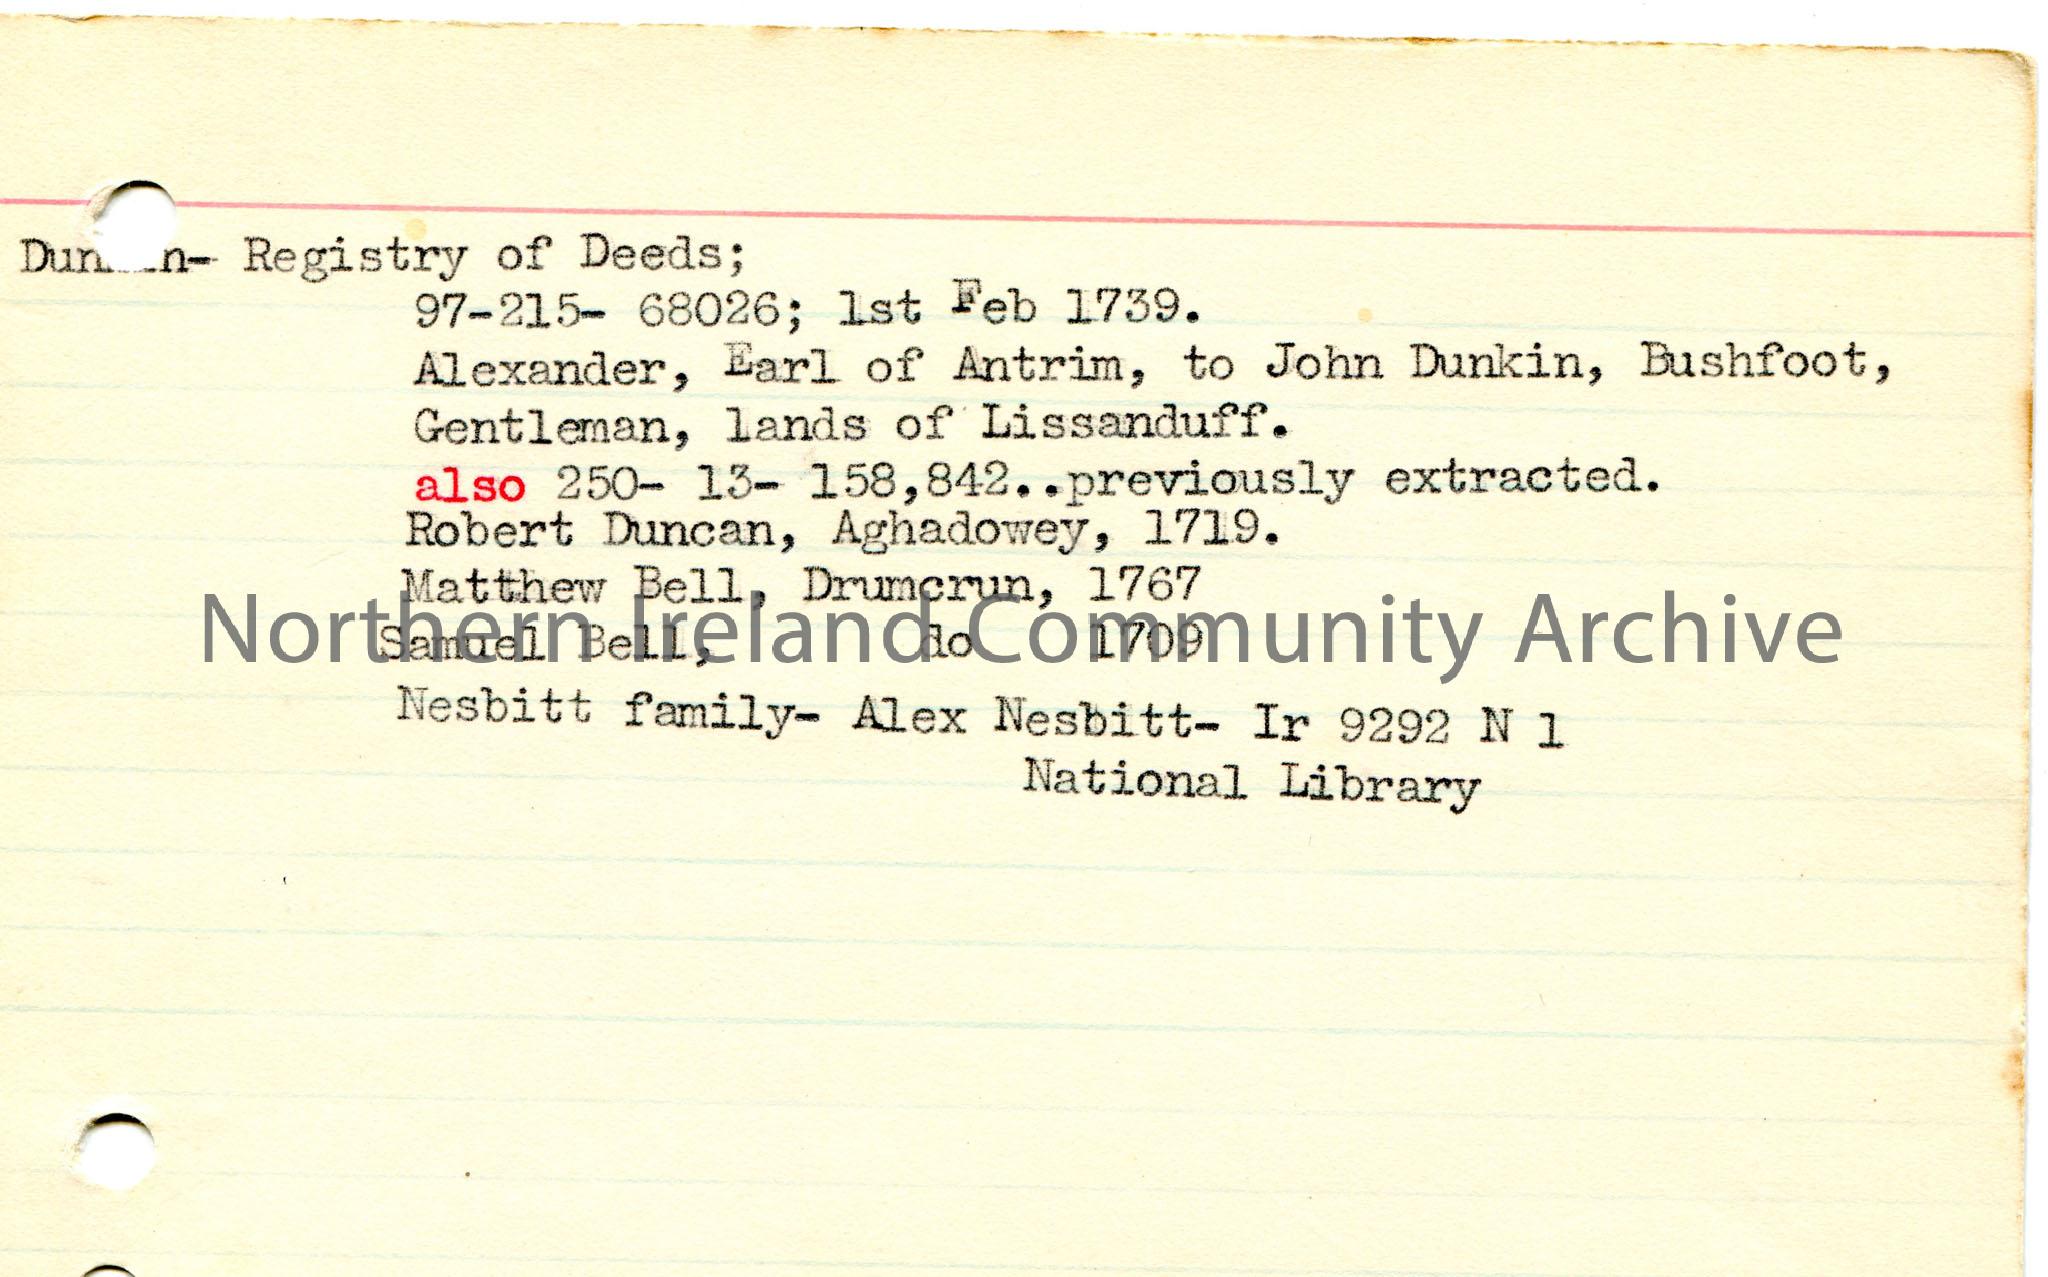 Dunkin- Registry of Deeds;
97-215- 68026; 1st Feb 1739.
Alexander, Earl of Antrim, to John Dunkin, Bushfoot,
Gentleman, lands of Lissanduff.
also 250- 13- 158,842..previously extracted.
Robert Duncan, Aghadowey, 1719.
Matthew Bell, Drumcrun, 1767
Samuel Bell, do 1709
Northern Ireland Community Archive
Nesbitt family- Alex Nesbitt- Ir 9292 N 1
National Library